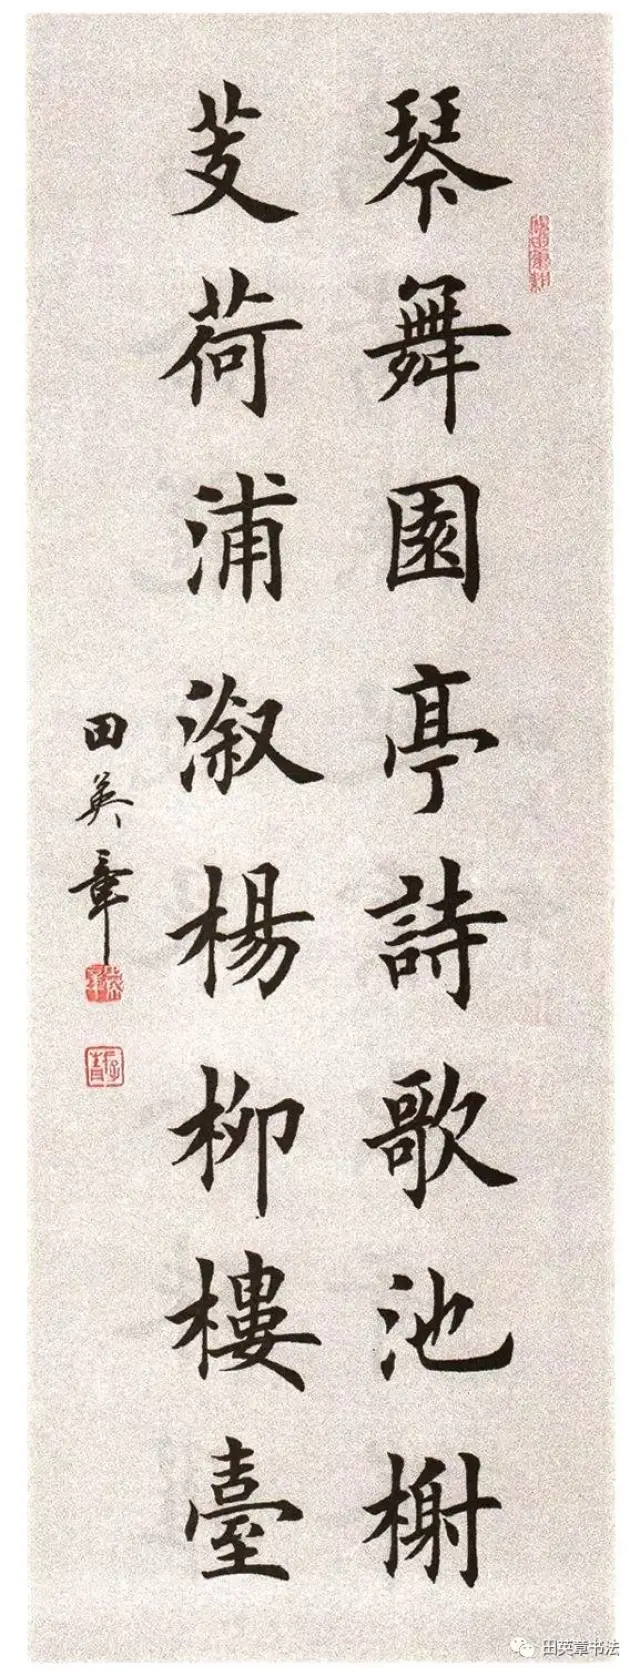 琴舞園亭詩歌池榭
芰荷浦溆楊柳樓臺
田英章
田英章书法